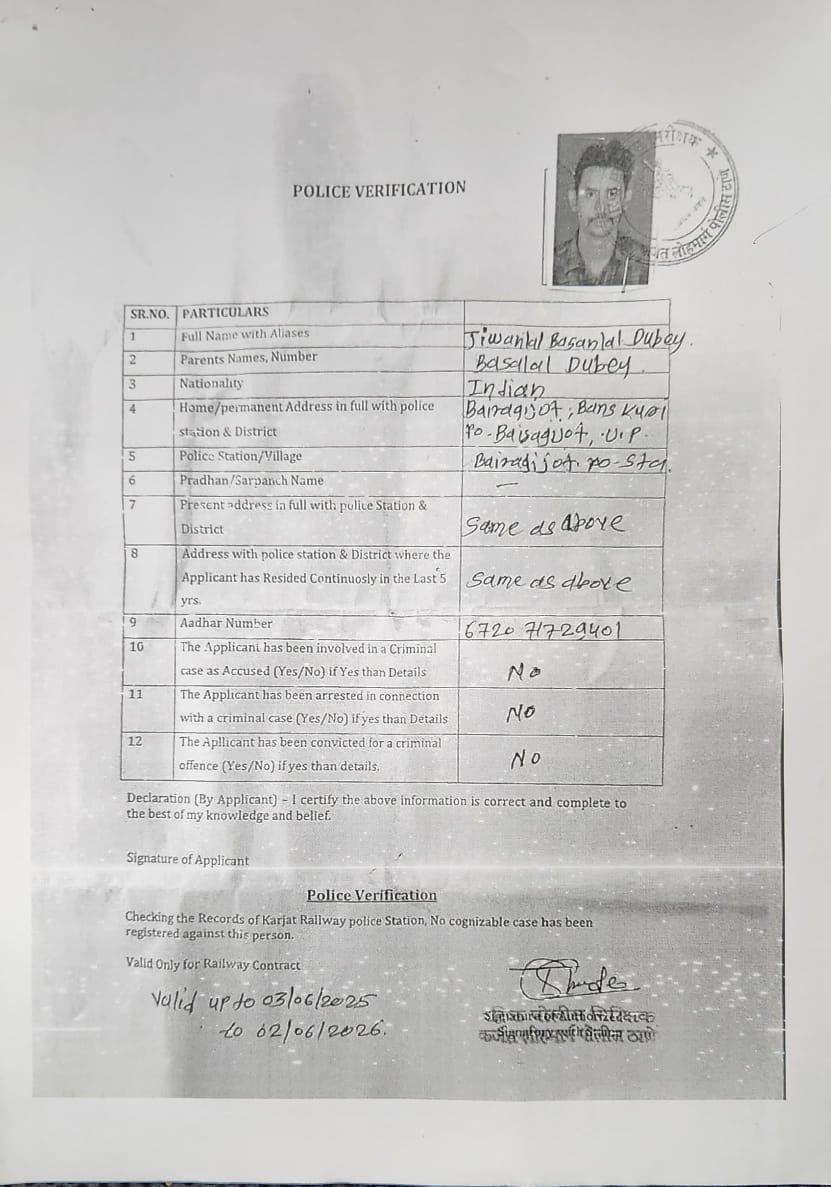 POLICE VERIFICATION
SR.NO. PARTICULARS
1 Full Name with Aliases Jiwanlal Basanlal Dubey.
2 Parents Names, Number Basalal Dubey.
3 Nationality Indian
4 Home/permanent Address in full with police Bairagijot, Bans Kuni
station & District Po- Bairagijot, U.P.
5 Police Station/Village Bairagijot. po-Sta.
6 Pradhan/Sarpanch Name —
7 Present address in full with police Station &
District Same as Above
8 Address with police station & District where the
Applicant has Resided Continuosly in the Last 5 Same as above
yrs.
9 Aadhar Number 6720 71729401
10 The Applicant has been involved in a Criminal
case as Accused (Yes/No) if Yes than Details No
11 The Applicant has been arrested in connection
with a criminal case (Yes/No) if yes than Details No
12 The Apllicant has been convicted for a criminal
offence (Yes/No) if yes than details. No
Declaration (By Applicant) – I certify the above information is correct and complete to
the best of my knowledge and belief.
Signature of Applicant
Police Verification
Checking the Records of Karjat Railway police Station, No cognizable case has been
registered against this person.
Valid Only for Railway Contract
Valid up to 03/06/2025
to 02/06/2026.